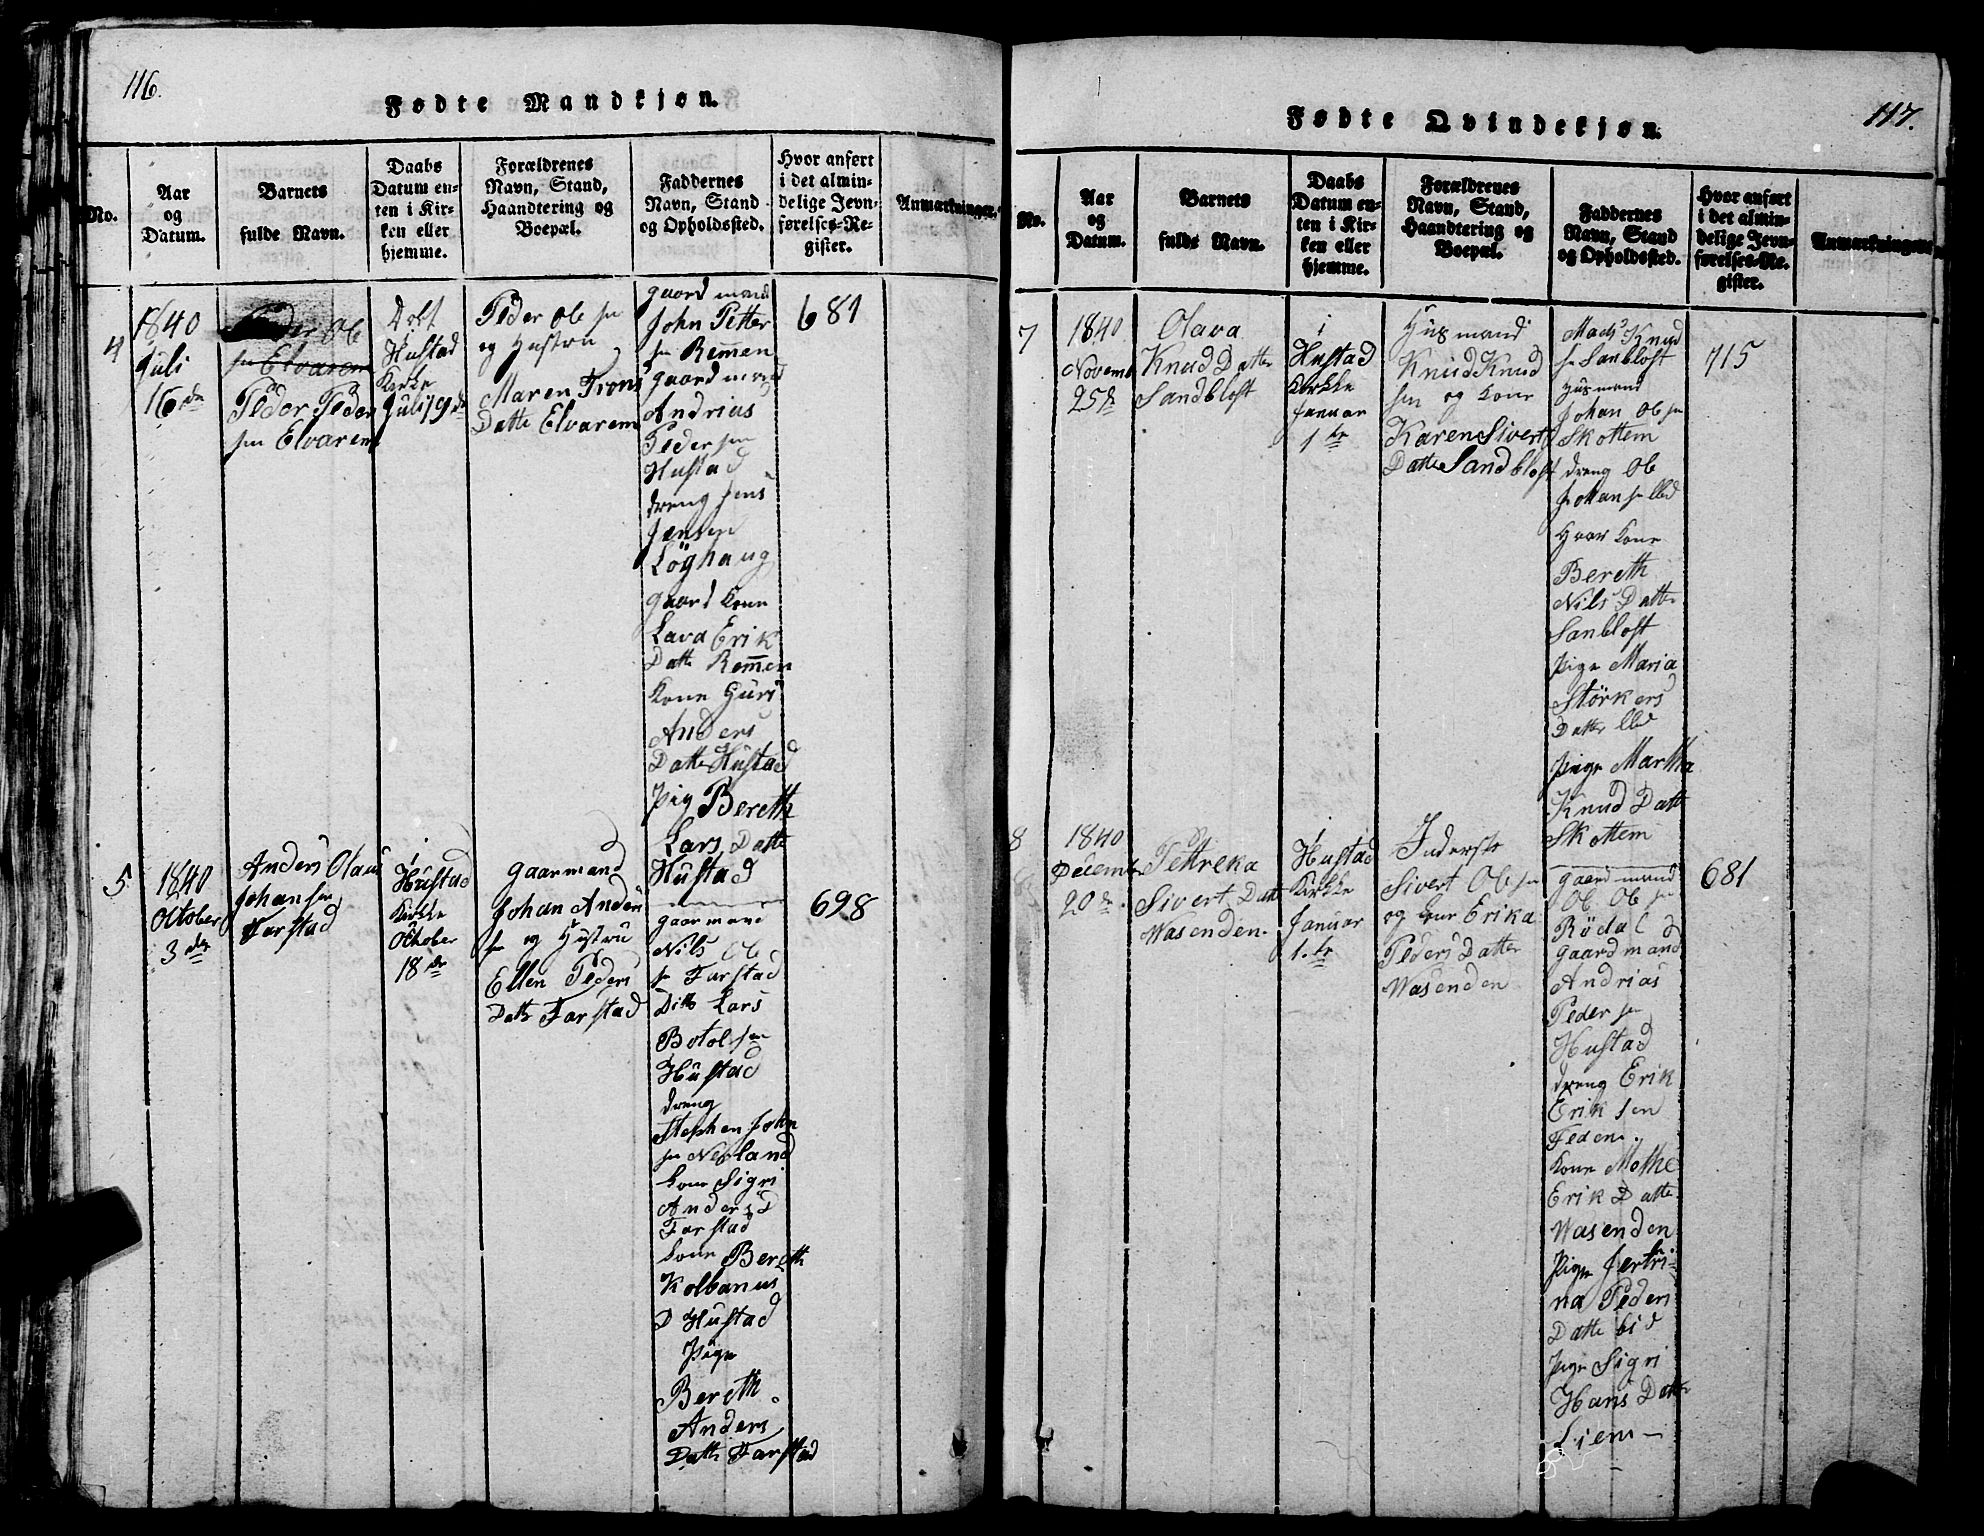 116.
Fødte Mandkjøn.
No.
Aar
og
Datum.
Barnets
fulde Navn.
Daabs
Datum en-
ten i Kir-
ken eller
hjemme.
Forældrenes
Navn, Stand,
Haandtering og
Boepæl.
Faddernes
Navn, Stand
og Opholdssted.
Hvor anført
i det almin-
delige Jevn-
førelses-Re-
gister.
Anmærkninger.
4
1840
Juli
16de
Peder Ob
sen Elvarem
Peder Peder
sen Elvarem
Døbt
Hustad
Kirke
Juli 19de
Peder Ob sen
og Hustru
Maren Trons
Datte Elvarem
gaard mand
John Petter
sen Remmen
gaard mand
Andrias
Peder sen
Hustad
dreng Jens
Jensen
Löghaug
gaard Kone
Lava Erik
Datte Remmen
Kone Guri
Anders
Datte Hustad
Pig Bereth
Lars Datte
Hustad
681
5
1840
October
3die
Anders Olaus
Johansen
Farstad
i
Hustad
Kirke
October
18de
gaarmand
Johan Anders
sen og Hustru
Ellen Peders
Datte Farstad
gaarmand
Nils Ob
sen Farstad
Ditto Lars
Botolsen
Hustad
dreng
Stephen John
sen Nerland
Kone Sigri
Anders D
Farstad
Kone Bereth
Kolbanus
D Hustad
Pige
Bereth
Anders
Datte Farstad
698
117.
Fødte Qvindekjøn.
No.
Aar
og
Datum.
Barnets
fulde Navn.
Daabs
Datum en-
ten i Kir-
ken eller
hjemme.
Forældrenes
Navn, Stand,
Haandtering og
Boepæl.
Faddernes
Navn, Stand
og Opholdssted.
Hvor anført
i det almin-
delige Jevn-
førelses-Re-
gister.
Anmærkninger.
7
1840
Novemb
25de
Olava
Knud Datte
Sandblost
i
Hustad
Kirkke
Januar
1te
Husmand
Knud Knud
sen og Kone
Karen Sivert
Datte Sandblost
Mads Knud
sen Sanblost
Husmand
Johan Ob sen
Skottem
dreng Ob
Johan sen
Kone
Bereth
Nils Datte
Sanblost
Pige Maria
Störkers
Datter
Pige Martha
Knud Datt
Skottem
715
8
1840
December
20de
Pettreka
Sivert Datt
Wasenden
i
Hustad
Kirkke
Januar
1te
Inderste
Sivert Ob sen
og Kone Erika
Peders Datter
Wasenden
gaard mand
Ob Ob sen
Rödal
gaardmand
Andrias
Peder sen
Hustad
dreng Erik
Erik sen
Teden
Kone Methe
Erik Datte
Wasenden
Pige Jertri-
na Peders
Datte bid
Pige Sigri
Hans Datte
Liem
681